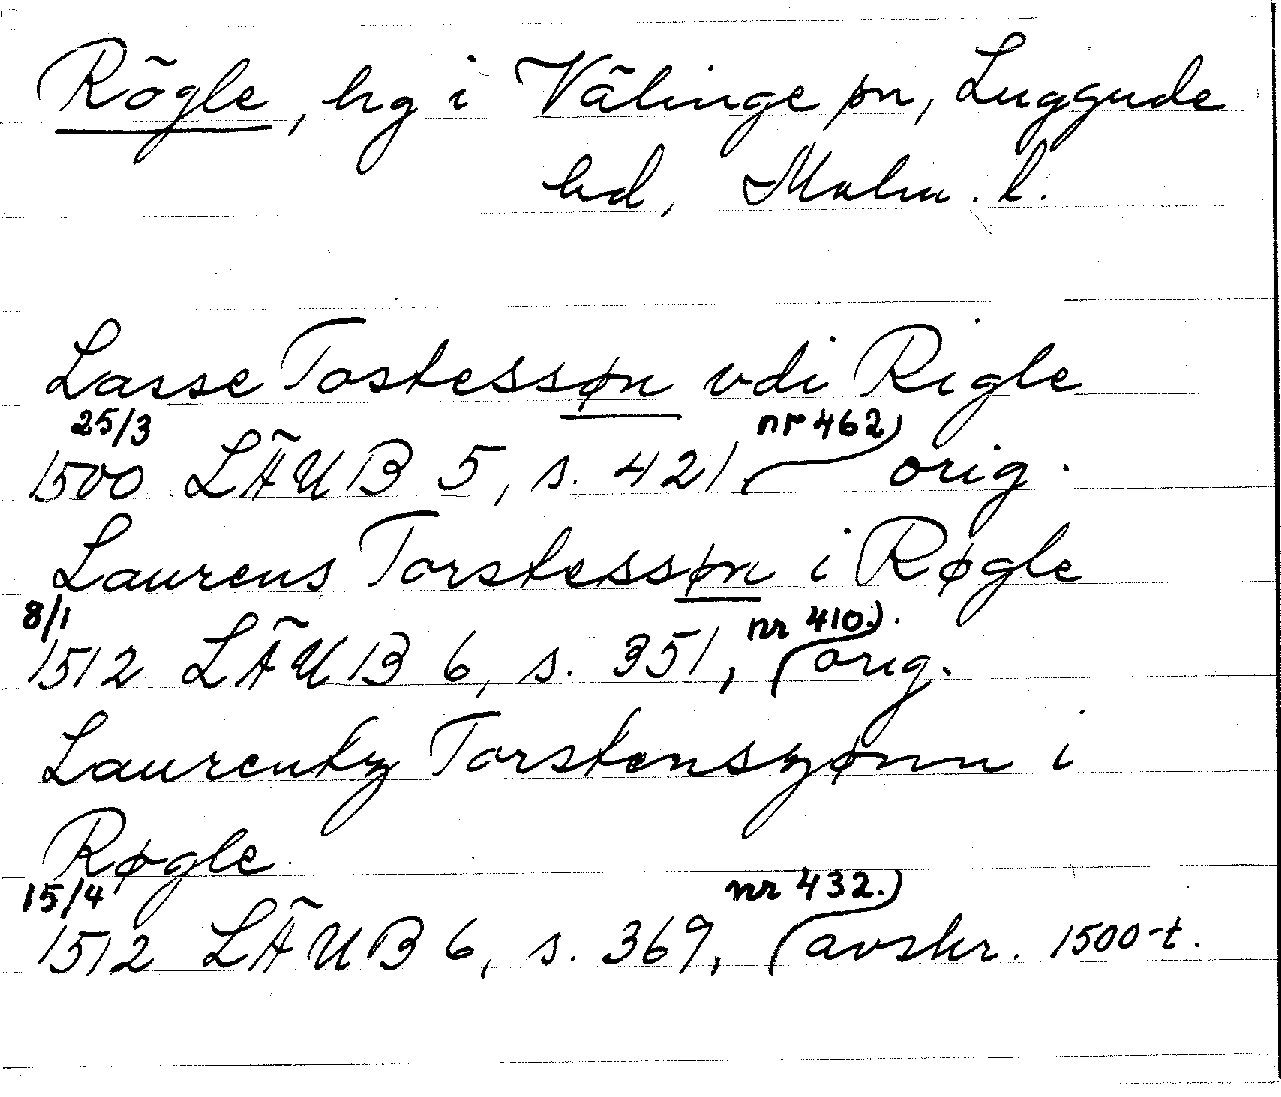 Rögle, hg i Välinge sn, Luggude
hd, Malm. l.
Lasse Tostessøn vdi Rigle
25/3 nr 462)
1500 LÄUB 5, s. 421 (orig.
Laurens Torstessøn i Røgle
8/1 nr 410.)
1512 LÄUB 6, s. 351, (orig.
Laurentz Torstenszønn i
Røgle
15/4 nr 432.)
1512 LÄUB 6, s. 369, (avskr. 1500-t.